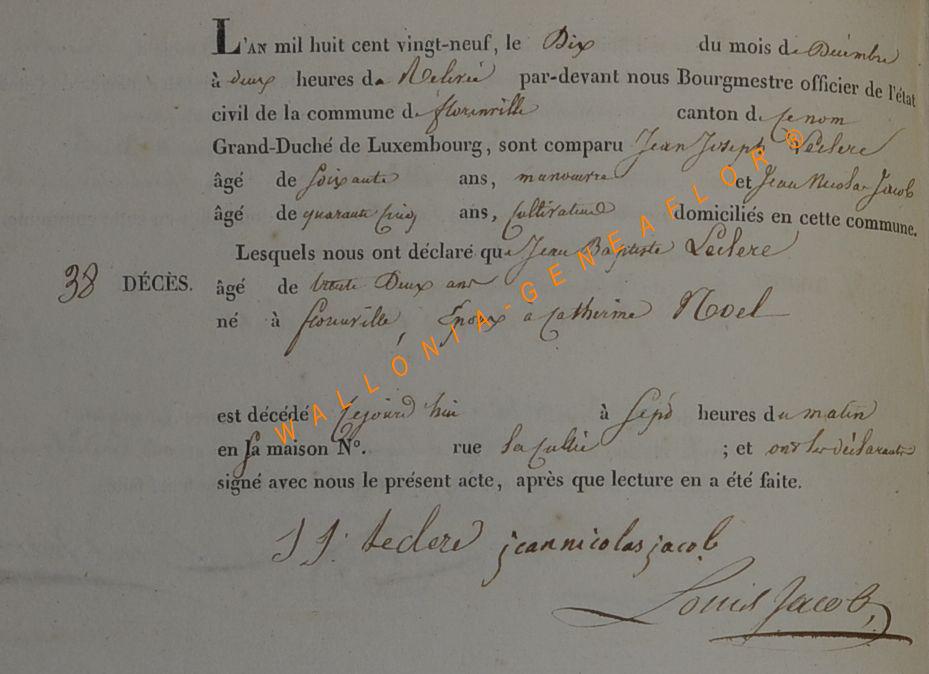 L'AN mil huit cent vingt-neuf, le Dix du mois de Décembre
à deux heures de Relevé par-devant nous Bourgmestre officier de l'état
civil de la commune de florenville canton de ce nom
Grand-Duché de Luxembourg, sont comparu Jean Joseph Leclere
âgé de soixante ans, manoeuvre et Jean Nicolas Jacob
âgé de quarante cinq ans, Cultivateur domiciliés en cette commune.
Lesquels nous ont déclaré que Jean Baptiste Leclere
38 DÉCÈS. âgé de trente Deux ans
né à florenville, Epoux à Catherine Noel
est décédé Cejourd'hui à Sept heures du matin
en sa maison N°. rue la ; et ont les déclarants
signé avec nous le présent acte, après que lecture en a été faite.
J J. Leclere jean nicolas jacob
Louis Jacob,
WALLONIA-GENEAFLOR®